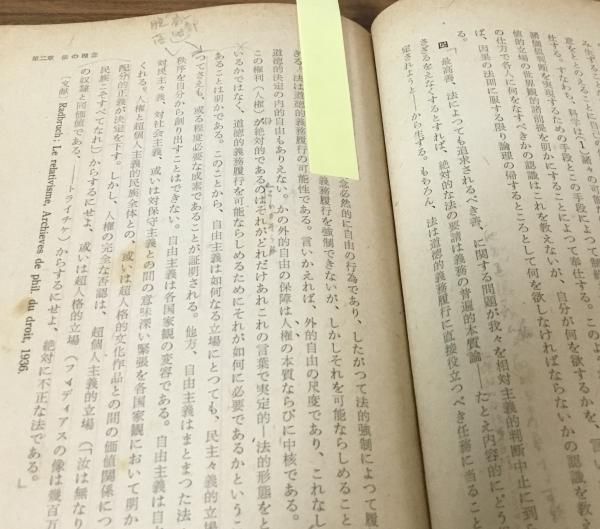 み生ずること
意をとのえることに自己の
存する。すなわち、科学は(1)諸々の可能
諸価値判断を実現するための手段とこの手段によって無終
値の立場の世界観的諸前提を明かにすることによって奉仕する。このよう
の仕方で各人に何をなすべきかの認識は
これを教えないが、自分が何を欲するかを、言い
ば、因果の法則に服する限り論理の帰するところとして何を欲しなければならないかの認識を教え
四「最高義、法によっても追求されるべき善、に関する問題が我々を相対主義的判断中止に到
さざるをえなくするとすれば、絶対的な法の要請は義務の普遍的本質論――たとえ内容的にどう
定されようと――から生ずる。もちろん、法は道徳的義務履行に直接役立つべき任務に当るこ
念必然的に自由の行為であり、したがって法的強制によって履
義務履行を強制できないが、しかしそれを可能ならしめること
きる。法は道徳的義務履行の可能性である。言いかえれば、外的自由の尺度であり、これなし
道徳的決定の内的自由もありえない。かの外的自由の保障は人権の本質ならびに中核である。
この権利(人権)が絶対的であるのはそれがどれだけあれこれの言葉で実定的―法的形態をと
いるかではなく、道徳的義務履行を可能ならしめるためにそれが如何に必要であるかというこ
あることは明かである。このことから、自由主義は如何なる立場にとつても、民主々義的立場
つてさえも、或る程度必要な成素であることが証明される。他方、自由主義はまとまつた法
秩序を自分から創り出すことはできない。自由主義は各国家観の変容である。自由主義は自
対民主々義、対社会主義、或いは対保守主義との間の意味深い緊張を各国家観において明か
くれる。人権と超個人主義的民族全体との、或いは超人格的文化作品との間の価値関係につ
配分的正義が決定を下す。しかし、人権の完全な否認は、超個人主義的立場(「汝は無なり
民族こそすべてなれ」)からするにせよ、或いは超人格的立場(「フィディアスの像は幾百万
の奴隷と同価値である」――トライチケ)からするにせよ、絶対に不正な法である。」
(文献、Radbruch: Le relativisme, Archieves de phil. du droit, 1906.
第二章 法の理念